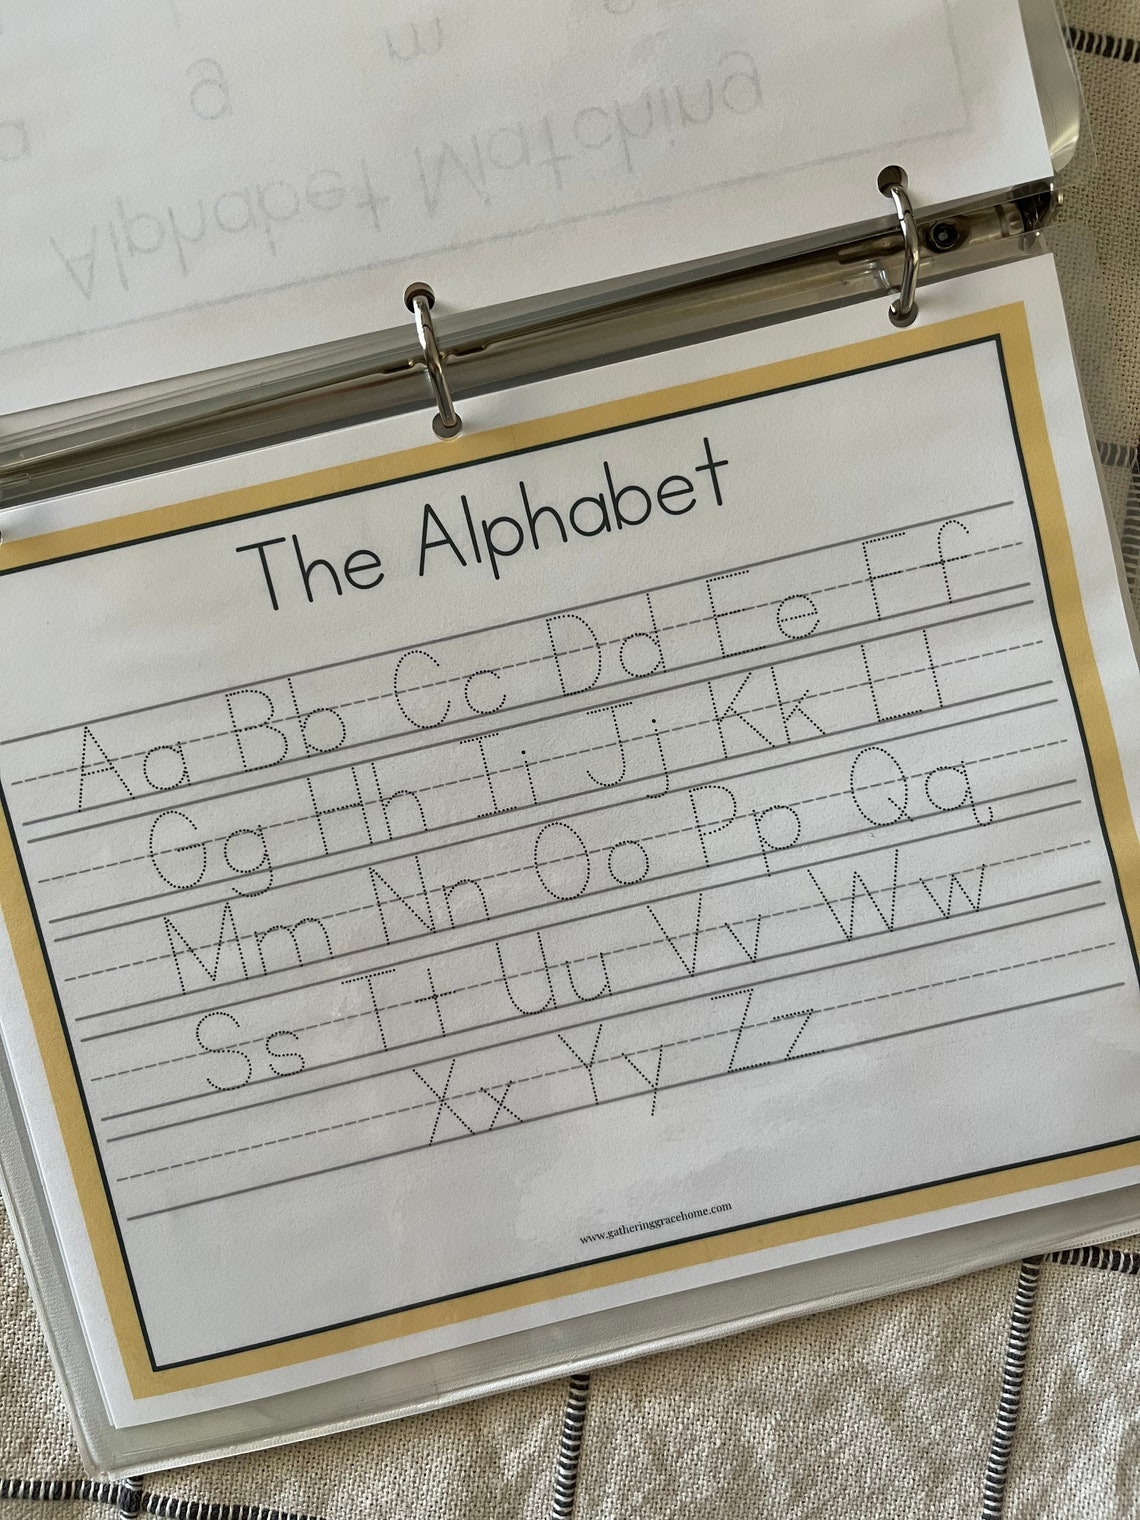 g m
Alphabet Matching
The Alphabet
Aa Bb Cc Dd Ee Ff
Gg Hh Ii Jj Kk Ll
Mm Nn Oo Pp Qq
Ss Tt Uu Vv Ww
Xx Yy Zz
www.gatheringgracehome.com